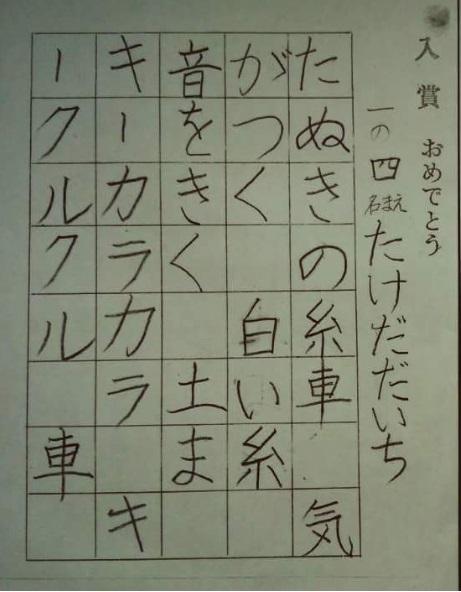 入賞 おめでとう
一の四 名まえ たけだだいち
たぬきの糸車 気
がつく 自い糸
音をきく 土ま
キーカラカラ キ
ークルクル 車